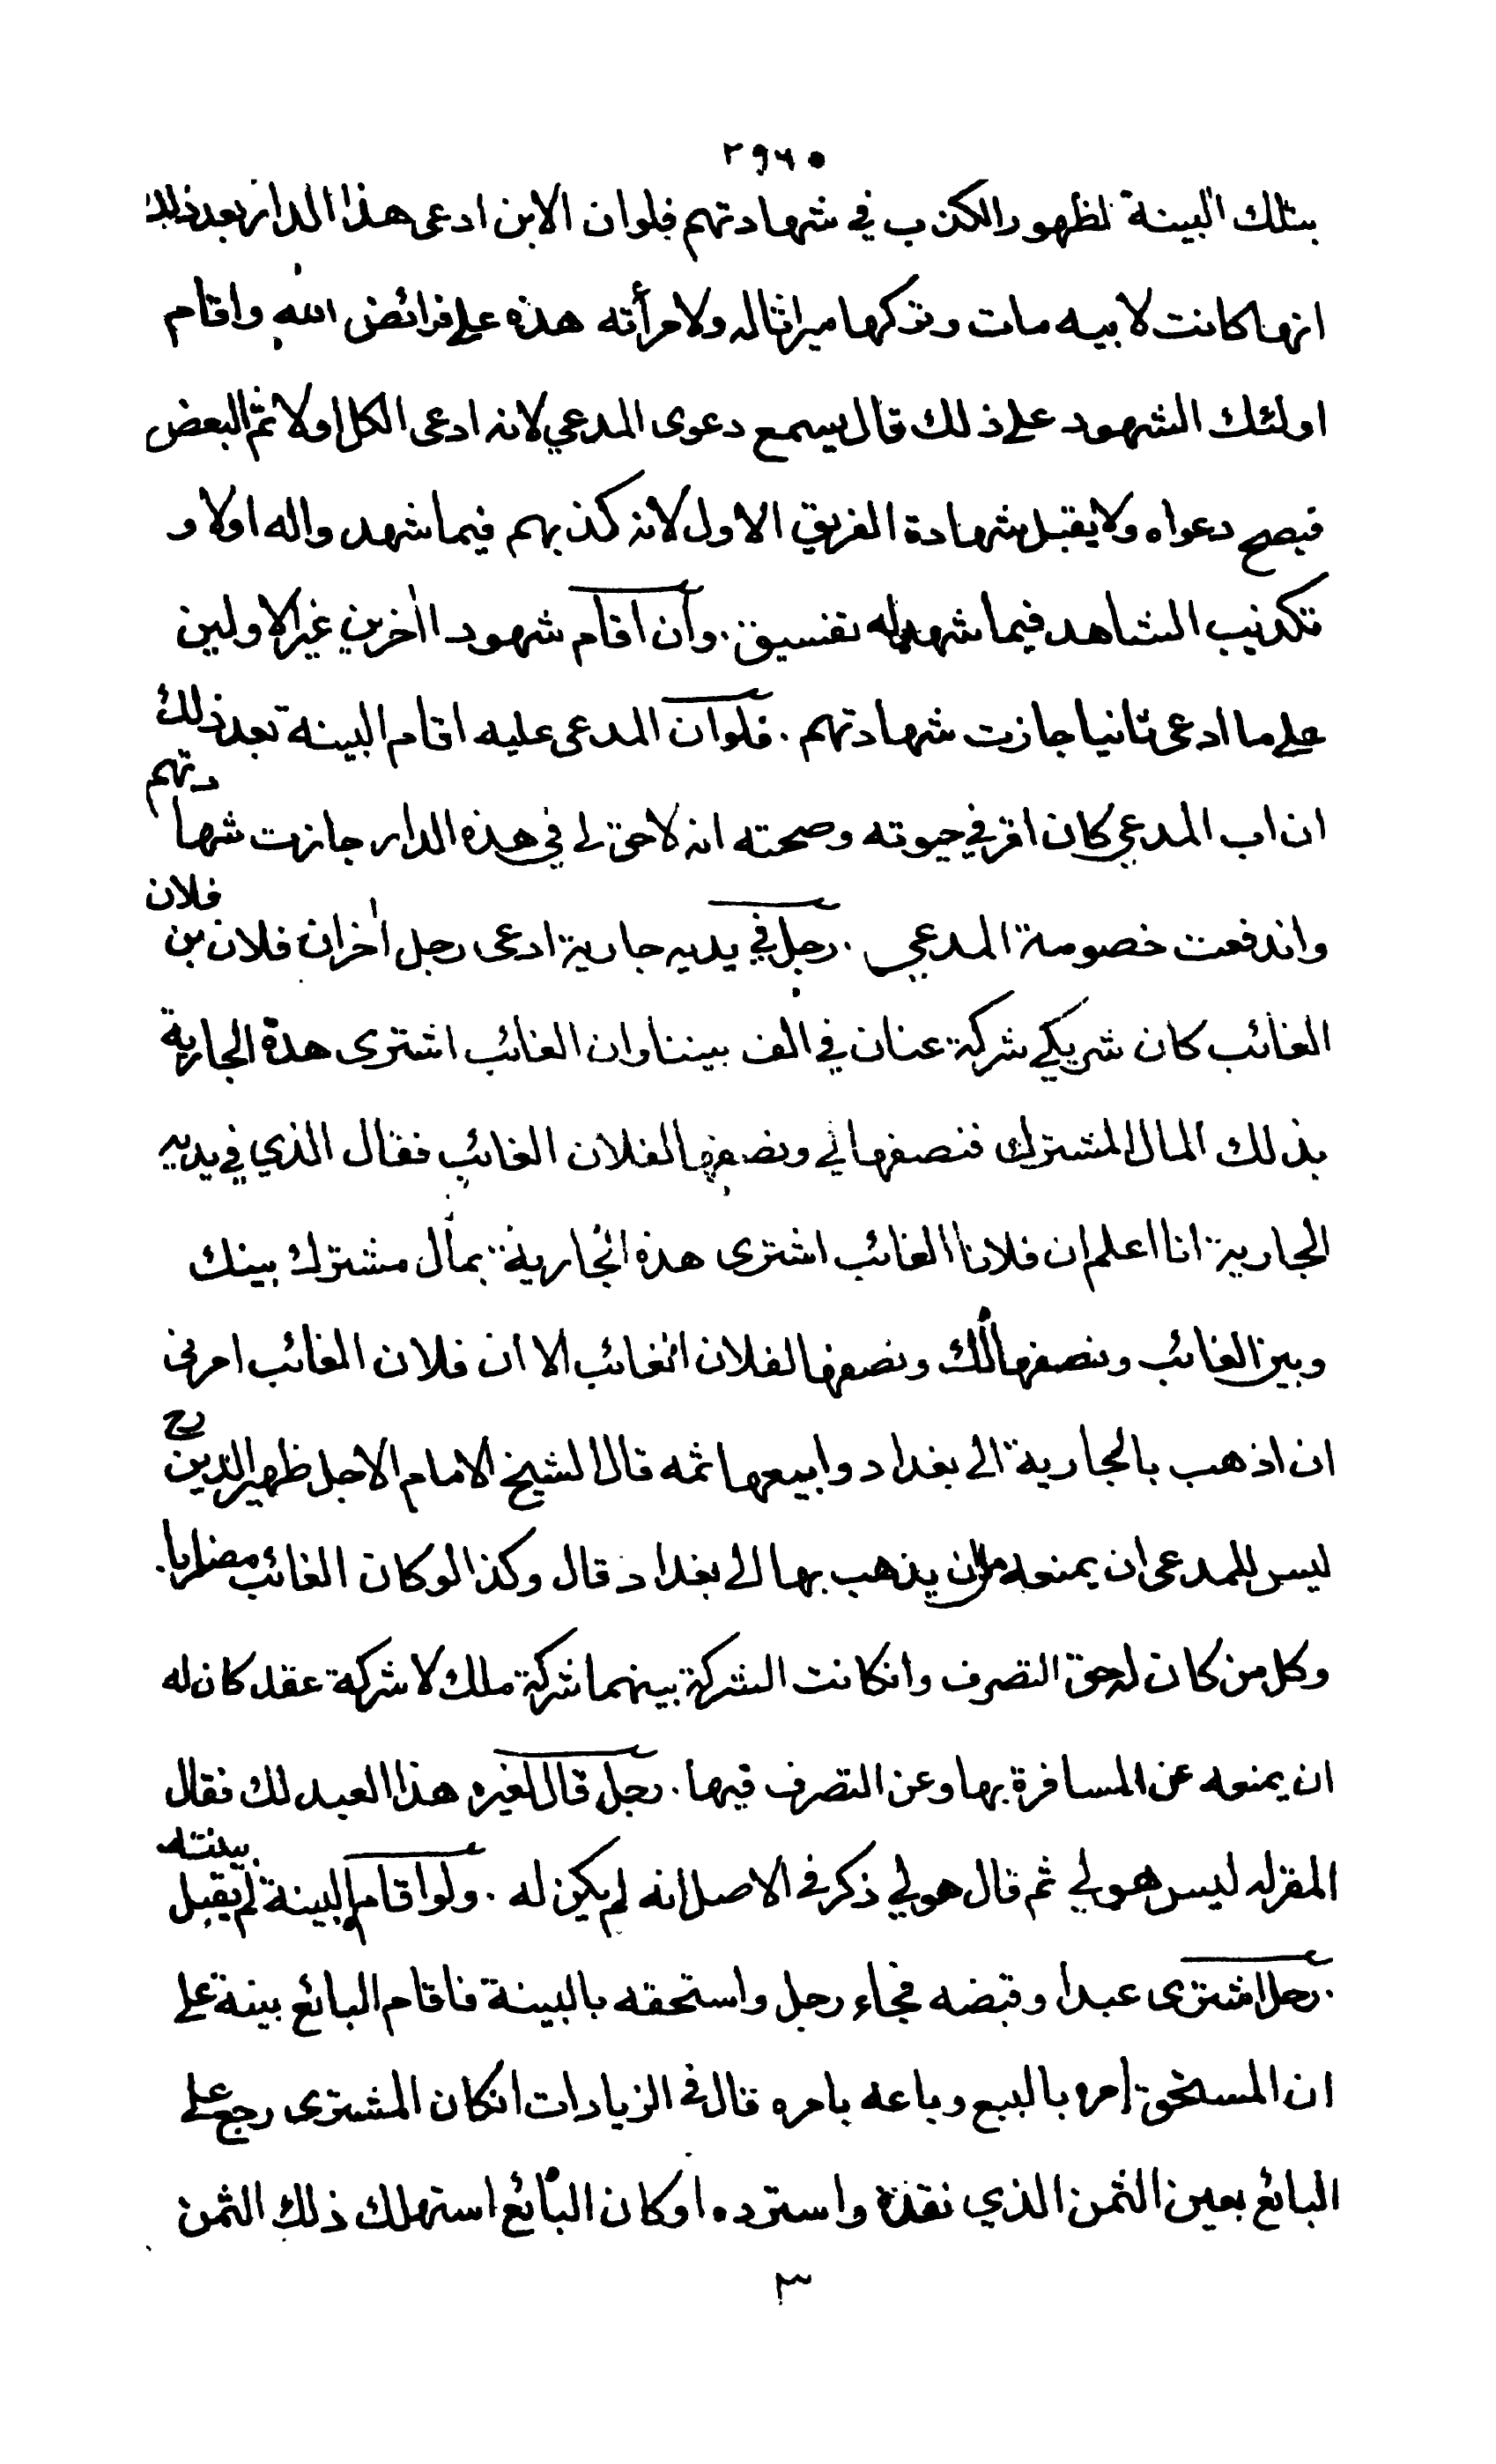 ٢٩٦٠
بتلك البينة لظهور الكذب في شهادتهم فلوان الابن ادعى هذا الدار بعد ذلك
انها كانت لابيه مات وتركها ميراثاله ولامرأته هذه على فرائض الله واقام
اولئك الشهود على ذلك قال يسمع دعوى المدعي لانه ادعى الكل اولا ثم البعض
فيصح دعواه ولا يقبل شهادة الفريق الاول لانه كذبهم فيما شهدوا له اولا و
تكذيب الشاهد فيما شهد له تفسيق. وان اقام شهودا اٰخرين غير الاولين
على ما ادعى ثانيا جازت شهادتهم . فلوان المدعى عليه اقام البينة بعد ذلك
ان اب المدعي كان اقر في حيوته وصحته انه لاحق لى في هذه الدار جازت شهادتهم
واندفعت خصومة المدعي . رجل في يديه جارية ادعى رجل اٰخر ان فلان بن فلان
الغائب كان شريكي شركة عنان في الف بيننا وان الغائب اشترى هذة الجارية
بذلك المال المشترك فنصفها لي ونصفها لفلان الغائب فقال الذي في يديه
الجارية انا اعلم ان فلانا الغائب اشترى هذه الجارية بمال مشترك بينك
وبين الغائب ونصفها لك ونصفها لفلان الغائب الا ان فلان الغائب امرنى
ان اذهب بالجارية الى بغداد وابيعها ثمه قال الشيخ الامام الاجل ظهير الدين رح
ليس للمدعى ان يمنعه من ان يذهب بها الى بغداد قال وكذا لو كان الغائب مضاربا.
وكل من كان له حق التصرف وانكانت الشركة بينهما شركة ملك لا شركة عقد كان له
ان يمنعه عن المسافرة بها وعن التصرف فيها. رجل قال لغيره هذا العبد لك فقال
المقر له ليس هو لي ثم قال هو لي ذكر في الاصل انه لم يكن له . ولو اقام البينة لم يقبل بينته
. رجل اشترى عبدا وقبضه فجاء رجل واستحقه بالبينة فاقام البائع بينة على
ان المستحق امره بالبيع وباعه بامره قال في الزيادات انكان المشترى رجع على
البائع بعين الثمن الذي نقدة واسترده اوكان البائع استهلك ذلك الثمن
٣